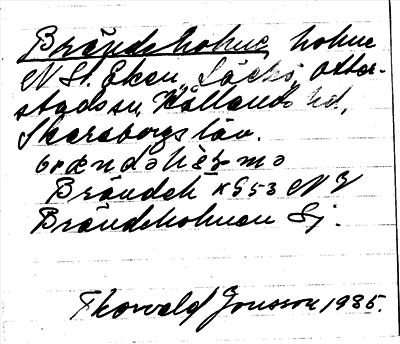 Brändeholme, holme
N St. Eken, Läckö, Otter-
stads sn, Kållands hd,
Skaraborgs län.
Brändeh KG53 NV
Brändeholmen Sj.
Thorvald Jonsson 1935.